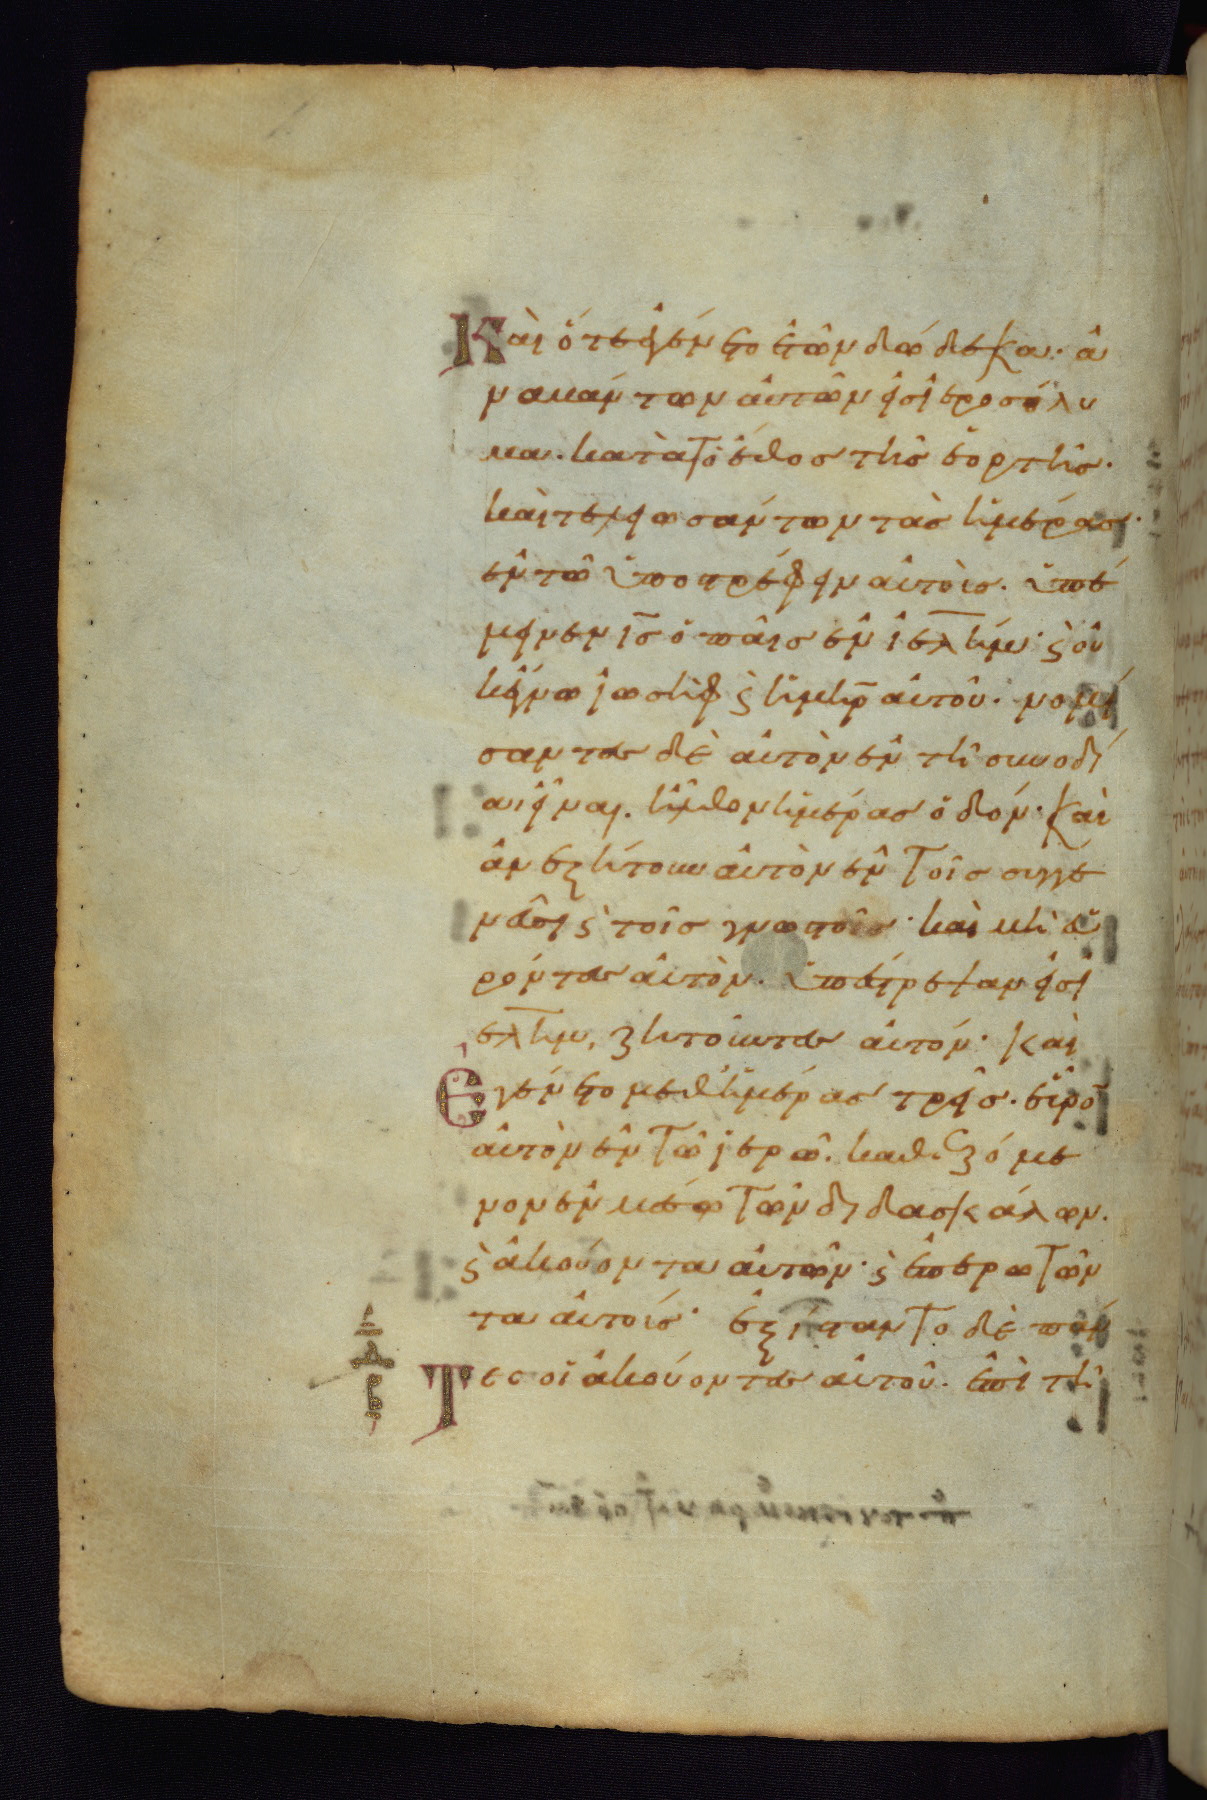 Και ὅτε ἐγένετο ἐτῶν δώδεκα· ἀ
ναβάντων αὐτῶν εἰς ἱεροσόλυ
μα· κατὰ τὸ ἔθος τῆς ἑορτῆς·
καὶ τελειωσάντων τὰς ἡμέρας·
ἐν τῶ ὑποστρέφειν αὐτοὺς· ὑπέ
μεινεν ις ὁ παῖς ἐν ἱελήμ· ϛ οὐκ
ἔγνω ἰωσὴφ ϛ ἡ μηρ αὐτοῦ· νομί
σαντες δὲ αὐτὸν ἐν τῆ συνοδί
α εἶναι· ἦλθον ἡμέρας ὁδόν· καὶ
ἀνεζήτουν αὐτὸν ἐν τοῖς συγγε
νέσι ϛ τοῖς γνωστοῖς· καὶ μὴ εὑ
ρόντες αὐτὸν· ὑπέστρεψαν εἰς ἱ
ελήμ, ζητοῦντες αὐτόν· καὶ
ἐγένετο μεθ ἡμέρας τρεῖς· εὗρον
αὐτὸν ἐν τῶ ἱερῶ· καθεζόμε
νον ἐν μέσω τῶν διδασκάλων·
ϛ ἀκούοντα αὐτῶν· ϛ ἐπερωτῶν
τα αὐτούς· ἐξίσταντο δὲ πάν
τες οἱ ἀκούοντες αὐτοῦ· ἐπὶ τῆ